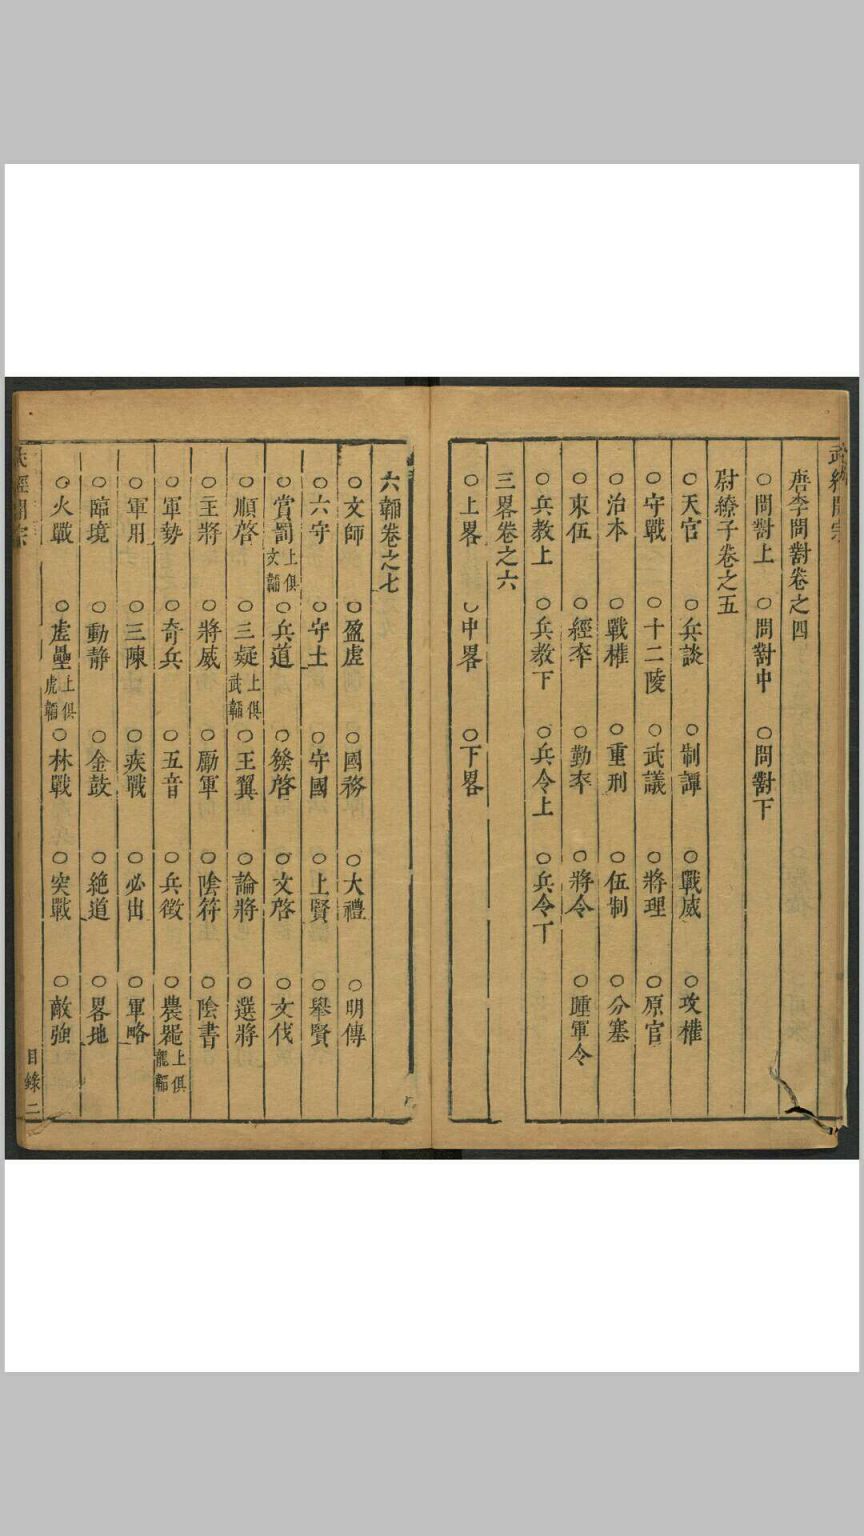 唐李問對卷之四
○問對上 ○問對中 ○問對下
尉繚子卷之五
○天官 ○兵談 ○制譚 ○戰威 ○攻權
○守戰 ○十二陵 ○武議 ○將理 ○原官
○治本 ○戰權 ○重刑 ○伍制 ○分塞
○束伍 ○經卒 ○勤卒 ○將令 ○踵軍令
○兵教上 ○兵教下 ○兵令上 ○兵令下
三畧卷之六
○上畧 ○中畧 ○下畧
六韜卷之七
○文師 ○盈虗 ○國務 ○大禮 ○明傳
○六守 ○守土 ○守國 ○上賢 ○舉賢
○賞罰 上俱文韜 ○兵道 ○發啓 ○文啓 ○文伐
○順啓 ○三疑 上俱武韜 ○王翼 ○論將 ○選將
○主將 ○將威 ○勵軍 ○陰符 ○陰書
○軍勢 ○奇兵 ○五音 ○兵徵 ○農噐 上俱龍韜
○軍用 ○三陳 ○疾戰 ○必出 ○軍略
○臨境 ○動靜 ○金鼓 ○絶道 ○畧地
○火戰 ○虗壘 上俱虎韜 ○林戰 ○突戰 ○敵強
目錄 二